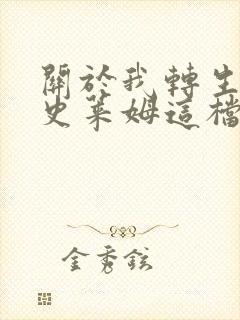 關於我轉生
史萊姆這檔
金秀鉉